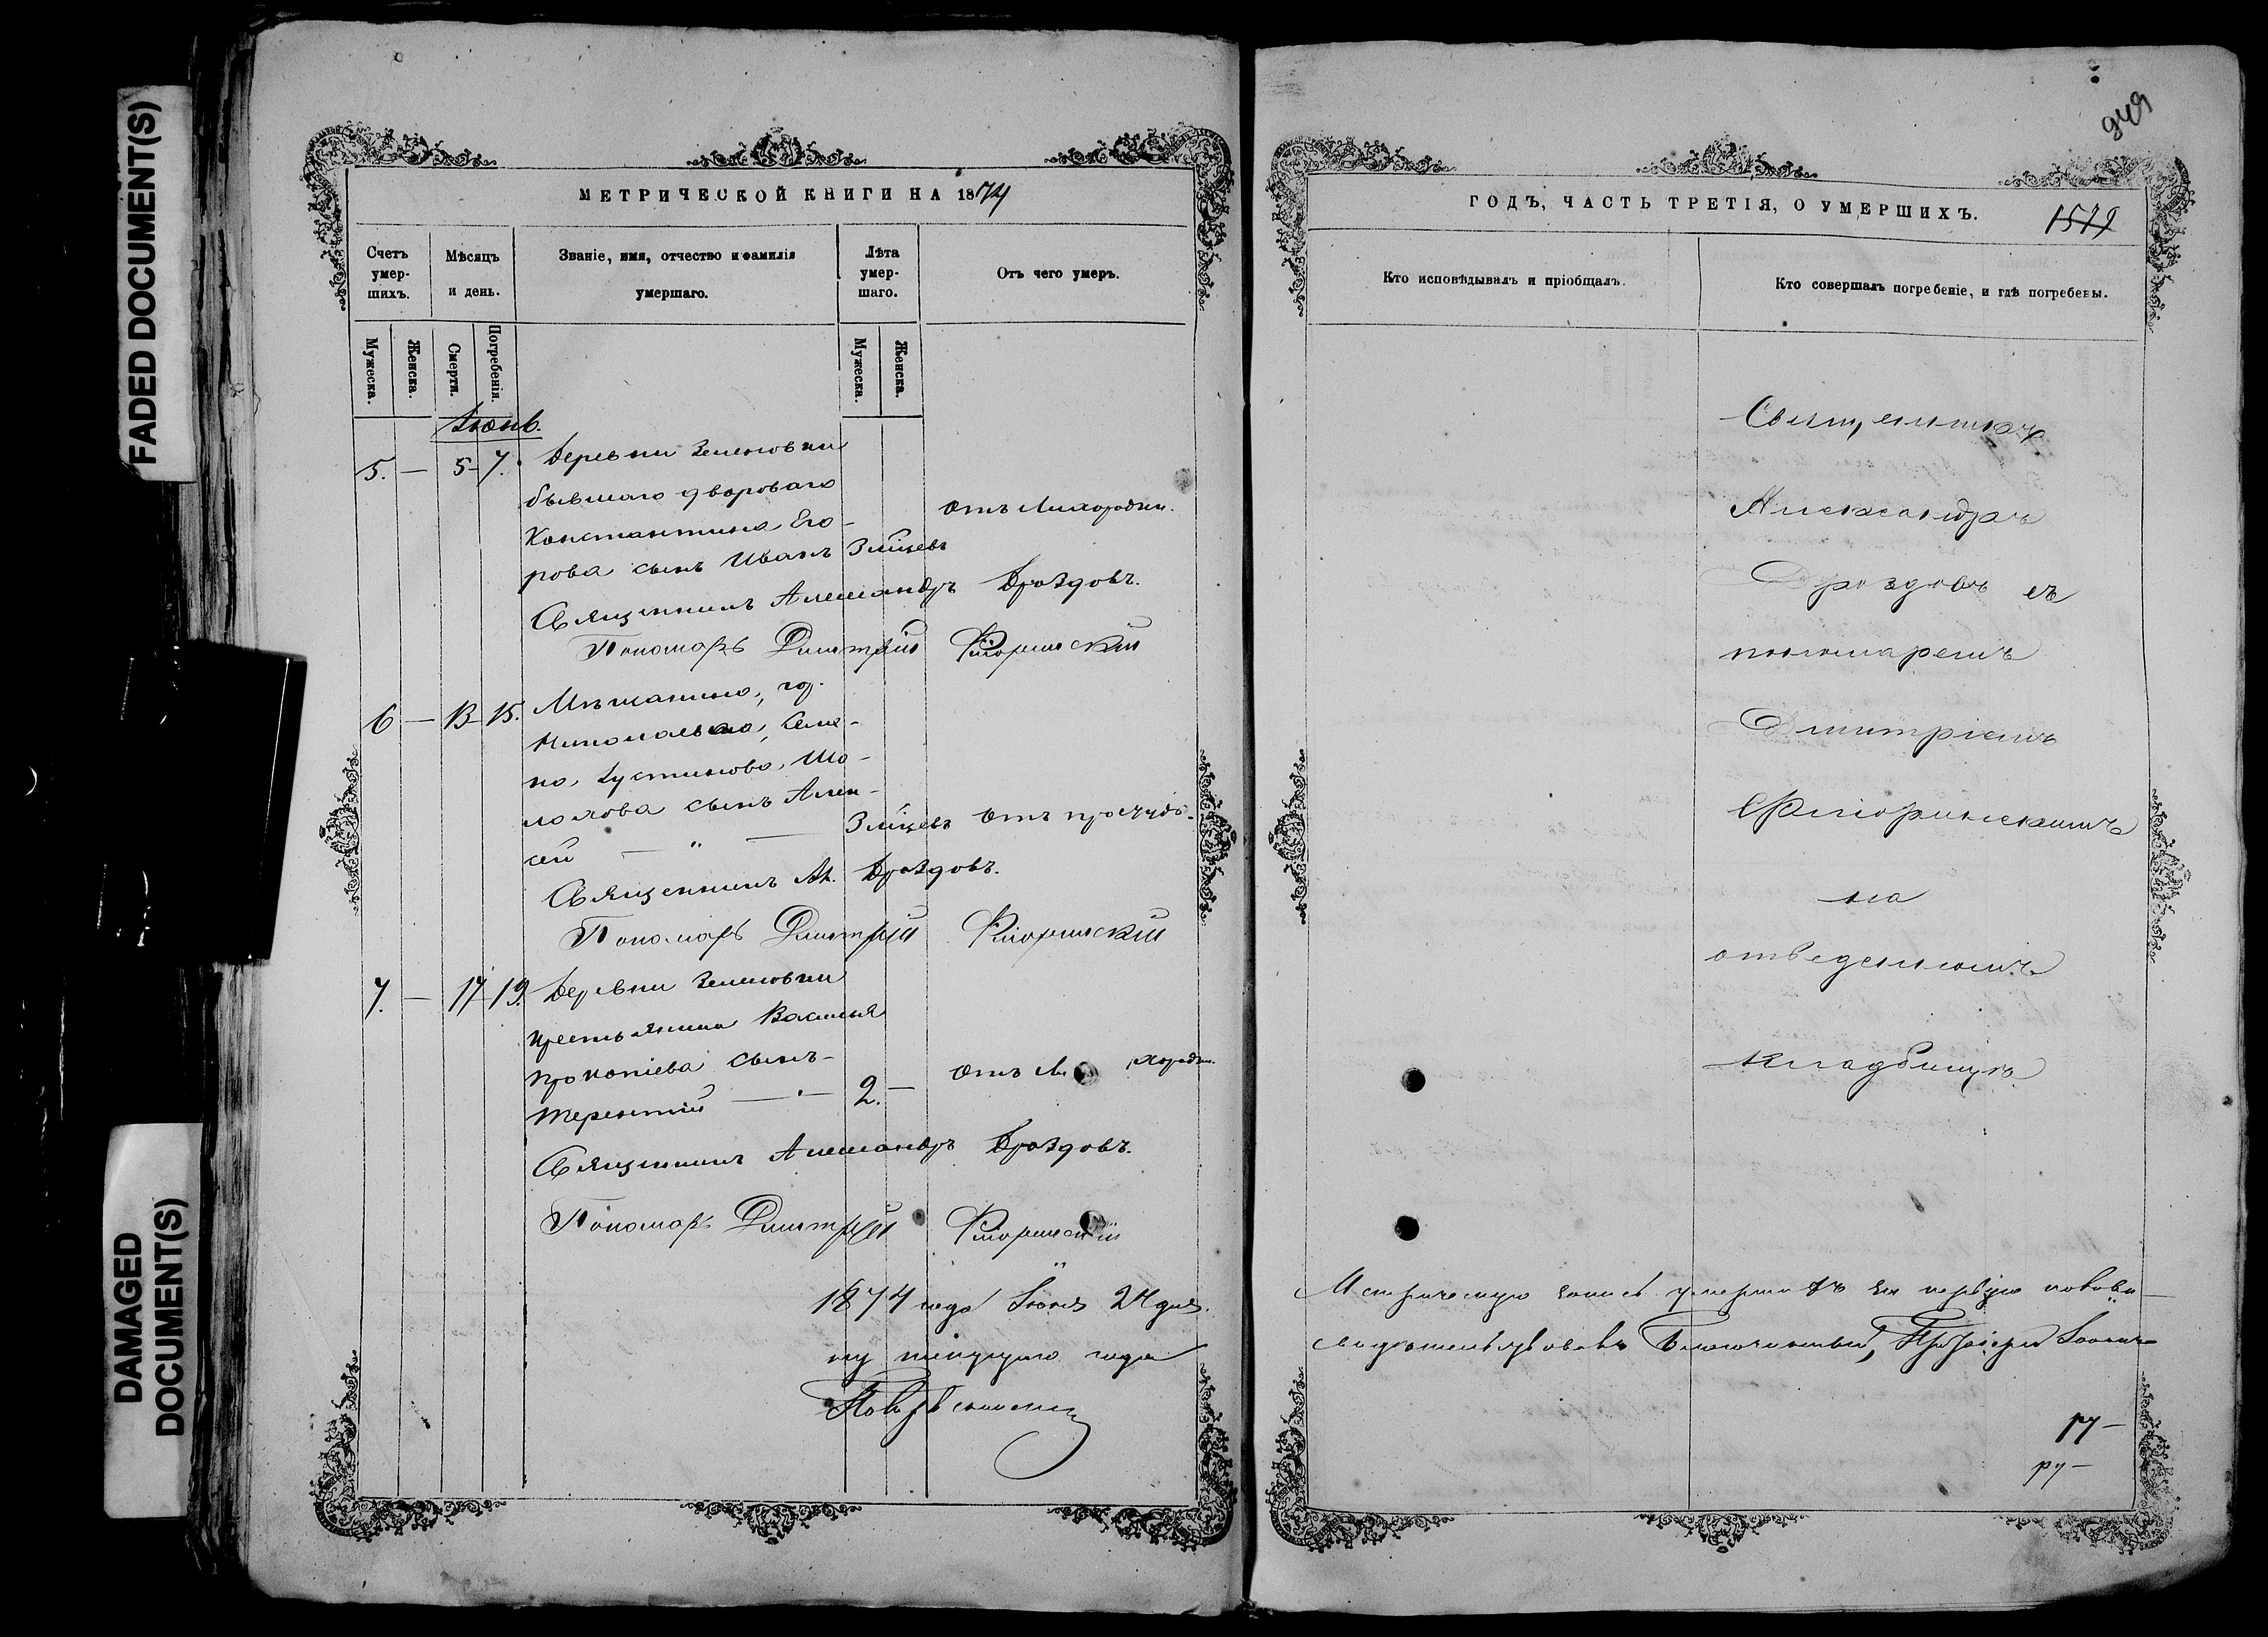 FADED DOCUMENT(S)
DAMAGED
DOCUMENT(S)
МЕТРИЧЕСКОЙ КНИГИ НА 1874
Счетъ умер-шихъ.
Мѣсяцъ и день.
Званіе, имя, отчество и фамилія умершаго.
Лѣта умер-шаго.
Отъ чего умеръ.
Мужеска.
Женска.
Смерти.
Погребенія.
Мужеска.
Женска.
Іюнь.
5. — 5 - 7. Деревни Зеленовки
бывшаго двороваго
Константина Его-
рова сынъ Иванъ
3 мѣсяцъ
отъ Лихорадки.
Священникъ Александръ Дроздовъ.
Пономарь Димитрій Флоринскій
6 — 13 - 15. Мѣщанина, гор.
Никополя, Семе-
на, Іустинова, Шо-
лохова сынъ Алек-
сѣй — " —
3 мѣсяцъ отъ простуды.
Священникъ Ал. Дроздовъ.
Пономарь Димитрій Флоринскій
7. — 17 19. Деревни Зеленовки
крестьянина Василія
Прокопіева сынъ -
Терентій — " — 2. —
отъ Ли хорадки.
Священникъ Александръ Дроздовъ.
Пономарь Димитрій Флоринскій
1874 года Іюля 24 дня.
ну текущаго года
949
ГОДЪ, ЧАСТЬ ТРЕТІЯ, О УМЕРШИХЪ.
1579
Кто исповѣдывалъ и пріобщалъ.
Кто совершалъ погребеніе, и гдѣ погребены.
Священникъ
Александръ
Дроздовъ съ
пономаремъ
Димитріемъ
Флоринскимъ
на
отведенномъ
кладбищѣ.
Метрическую запись умершихъ за первую полови-
свидѣтельствовалъ Благочинный, Протоіерей Іоаннъ
ру —
ру —